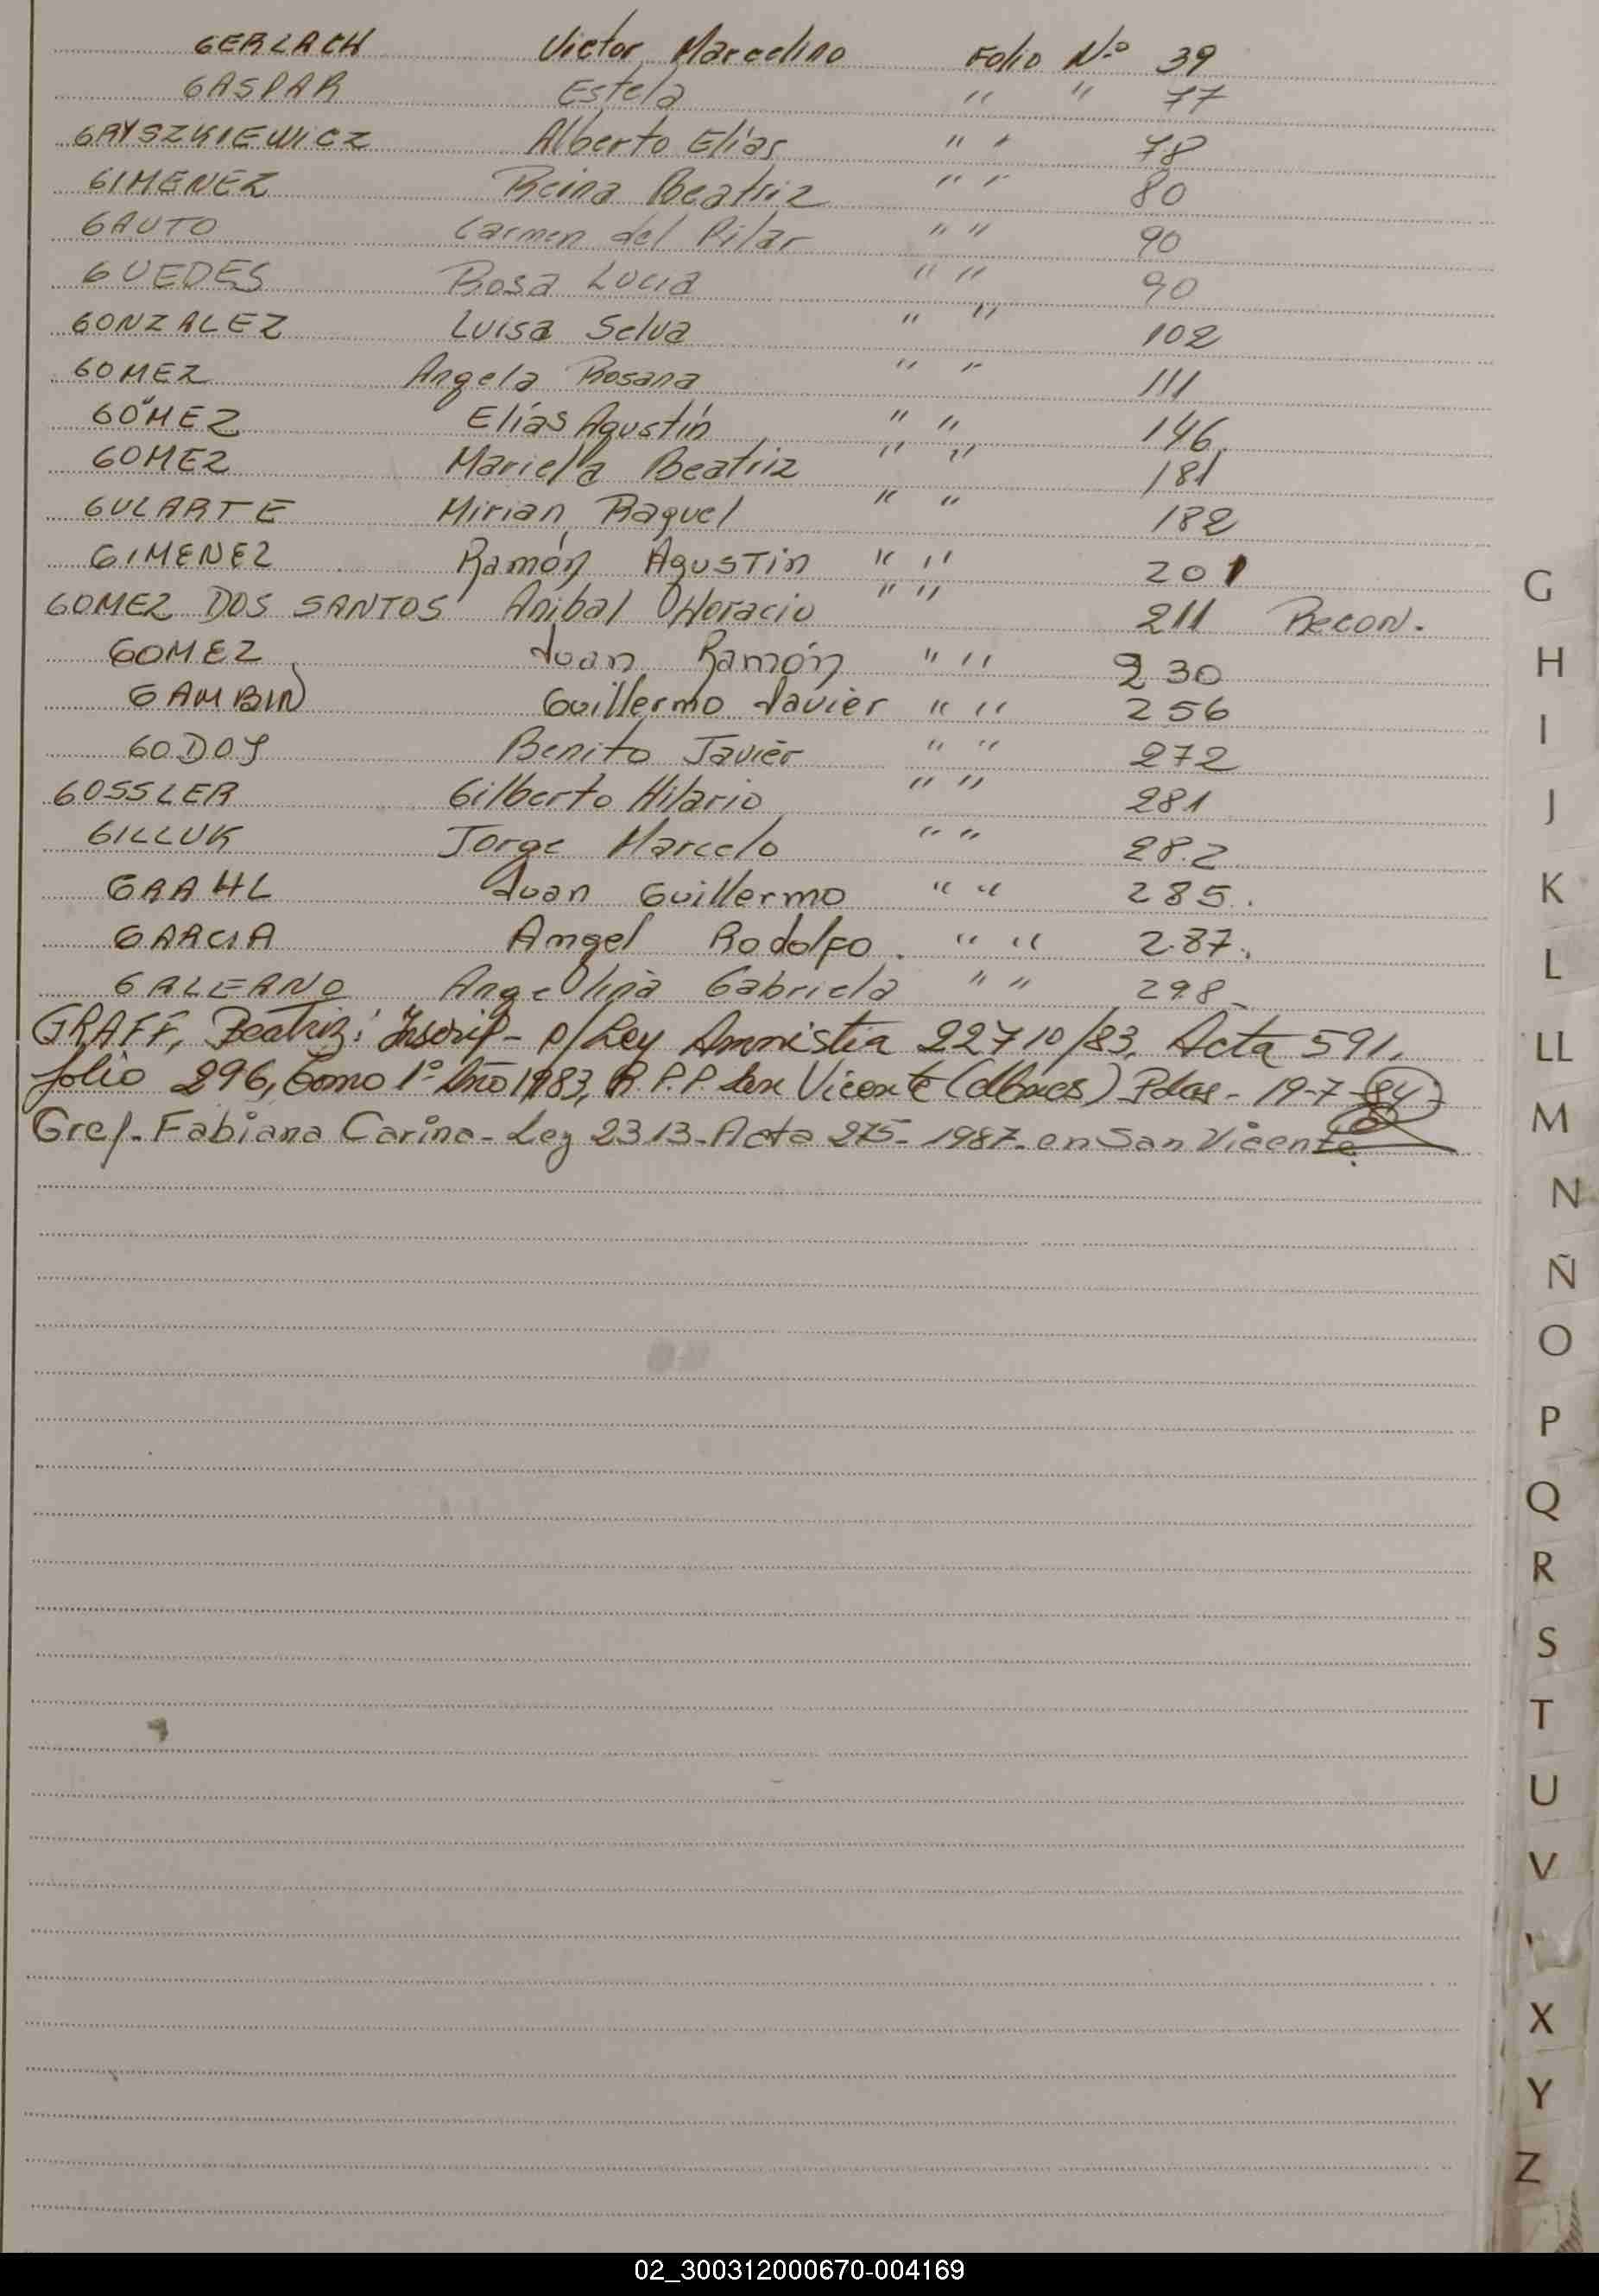 GERLACH Victor Marcelino Folio Nº 39
GASPAR Estela " " 77
GRYSZKIEWICZ Alberto Elías " " 78
GIMENEZ Reina Beatriz " " 80
GAUTO Carmen del Pilar " " 90
GUEDES Rosa Lucia " " 90
GONZALEZ Luisa Selva " " 102
GOMEZ Angela Rosana " " 111
GÓMEZ Elías Agustín " " 146
GOMEZ Mariela Beatriz " " 181
GULARTE Mirian Raquel " " 182
GIMENEZ Ramón Agustin " " 201
GOMEZ DOS SANTOS Anibal Horacio " " 211 Recon.
GOMEZ Juan Ramón " " 230
GAMBIN Guillermo Javier " " 256
GODOY Benito Javier " " 272
GOSSLER Gilberto Hilario " " 281
GILLUK Jorge Marcelo " " 282
GRAHL Juan Guillermo " " 285.
GARCIA Angel Rodolfo. " " 287.
GALEANO Angelina Gabriela " " 298
GRAFF, Beatriz: Inscrip- p/Ley Amnistia 22710/83. Acta 591.
folio 296, tomo 1º Año 1983, R.P.P. San Vicente Pdas - 19-7-84-
Gref. Fabiana Carina - Ley 2313 - Acta 275 - 1987 - en San Vicente.
G
H
I
J
K
L
LL
M
N
Ñ
O
P
Q
R
S
T
U
V
X
Y
Z
02_300312000670-004169